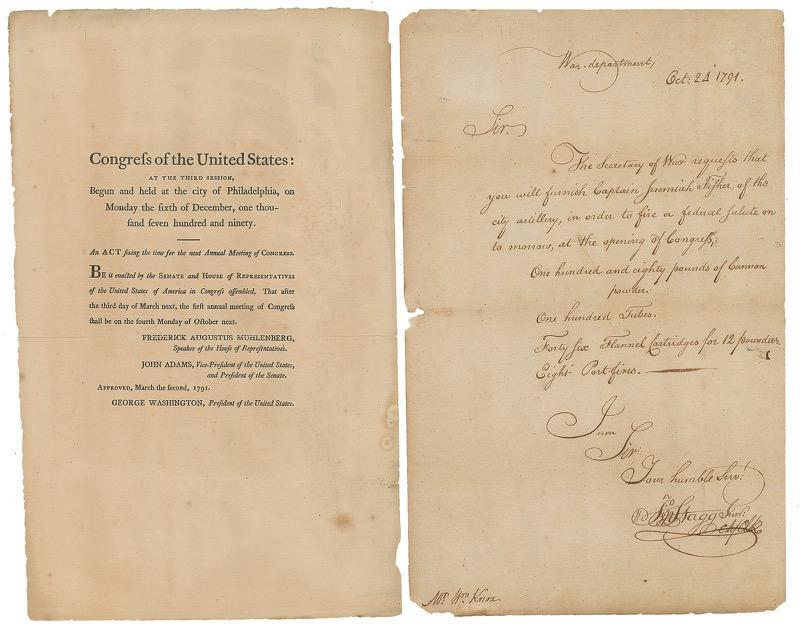 Congreſs of the United States:
AT THE THIRD SESSION,
Begun and held at the city of Philadelphia, on
Monday the ſixth of December, one thou-
ſand ſeven hundred and ninety.
An ACT fixing the time for the next Annual Meeting of CONGRESS.
BE it enacted by the SENATE and HOUSE of REPRESENTATIVES
of the United States of America in Congreſs aſſembled, That after
the third day of March next, the firſt annual meeting of Congreſs
ſhall be on the fourth Monday of October next.
FREDERICK AUGUSTUS MUHLENBERG,
Speaker of the Houſe of Repreſentatives.
JOHN ADAMS, Vice-Preſident of the United States,
and Preſident of the Senate.
APPROVED, March the ſecond, 1791.
GEORGE WASHINGTON, Preſident of the United States.
War department,
Oct: 24 1791.
Sir.
The Secretary of War requests that
you will furnish Captain Jeremiah Fisher, of the
city artillery, in order to fire a federal salute on
to morrow, at the opening of Congress,
One hundred and eighty pounds of Cannon
powder.
One hundred Tubes.
Forty six Flannel Cartridges for 12 pounders.
Eight Port-fires.
I am
Sir
Your humble Servt
Jno Stagg Junr.
Mr. Wm Knox